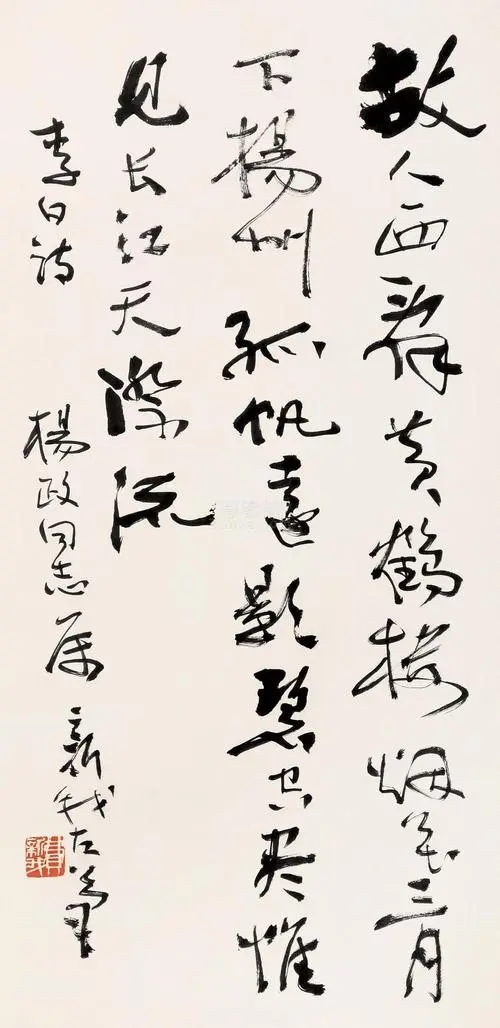 故人西辞黄鹤楼烟花三月
下揚州孤帆遠影碧空尽惟
见长江天際流
李白诗
楊政同志属 新我左笔